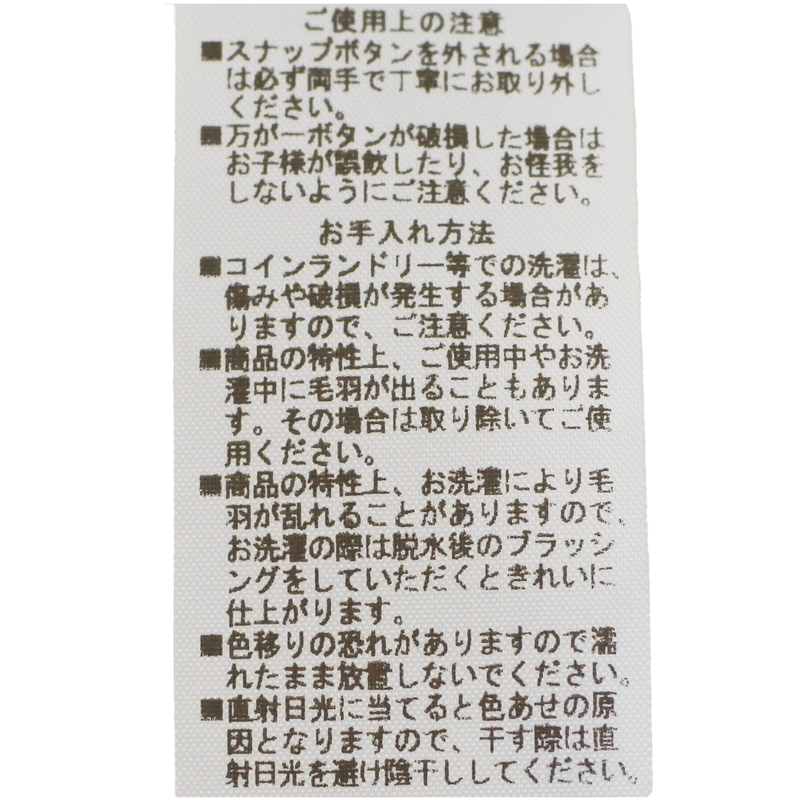 ご使用上の注意
■スナップボタンを外される場合
は必ず両手で丁寧にお取り外し
ください。
■万が一ボタンが破損した場合は
お子様が誤飲したり、お怪我を
しないようにご注意ください。
お手入れ方法
■コインランドリー等での洗濯は、
傷みや破損が発生する場合があ
りますので、ご注意ください。
■商品の特性上、ご使用中やお洗
濯中に毛羽が出ることもありま
す。その場合は取り除いてご使
用ください。
■商品の特性上、お洗濯により毛
羽が乱れることがありますので、
お洗濯の際は脱水後のブラッシ
ングをしていただくときれいに
仕上がります。
■色移りの恐れがありますので濡
れたまま放置しないでください。
■直射日光に当てると色あせの原
因となりますので、干す際は直
射日光を避け陰干ししてください。